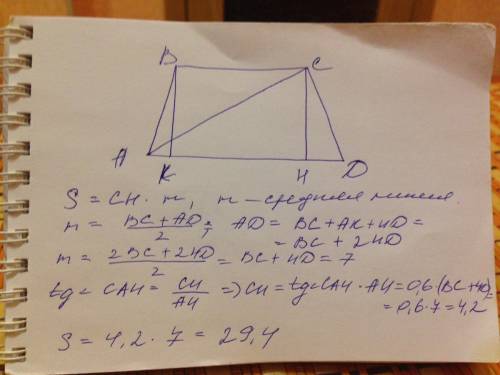 B C
A K H D
S = CH · m, m – средняя линия.
m = BC + AD / 2 ; AD = BC + AK + HD =
= BC + 2HD
m = 2BC + 2HD / 2 = BC + HD = 7
tg ∠ CAH = CH / AH ⇒ CH = tg ∠CAH · AH = 0,6 · (BC + HD) =
= 0,6 · 7 = 4,2
S = 4,2 · 7 = 29,4